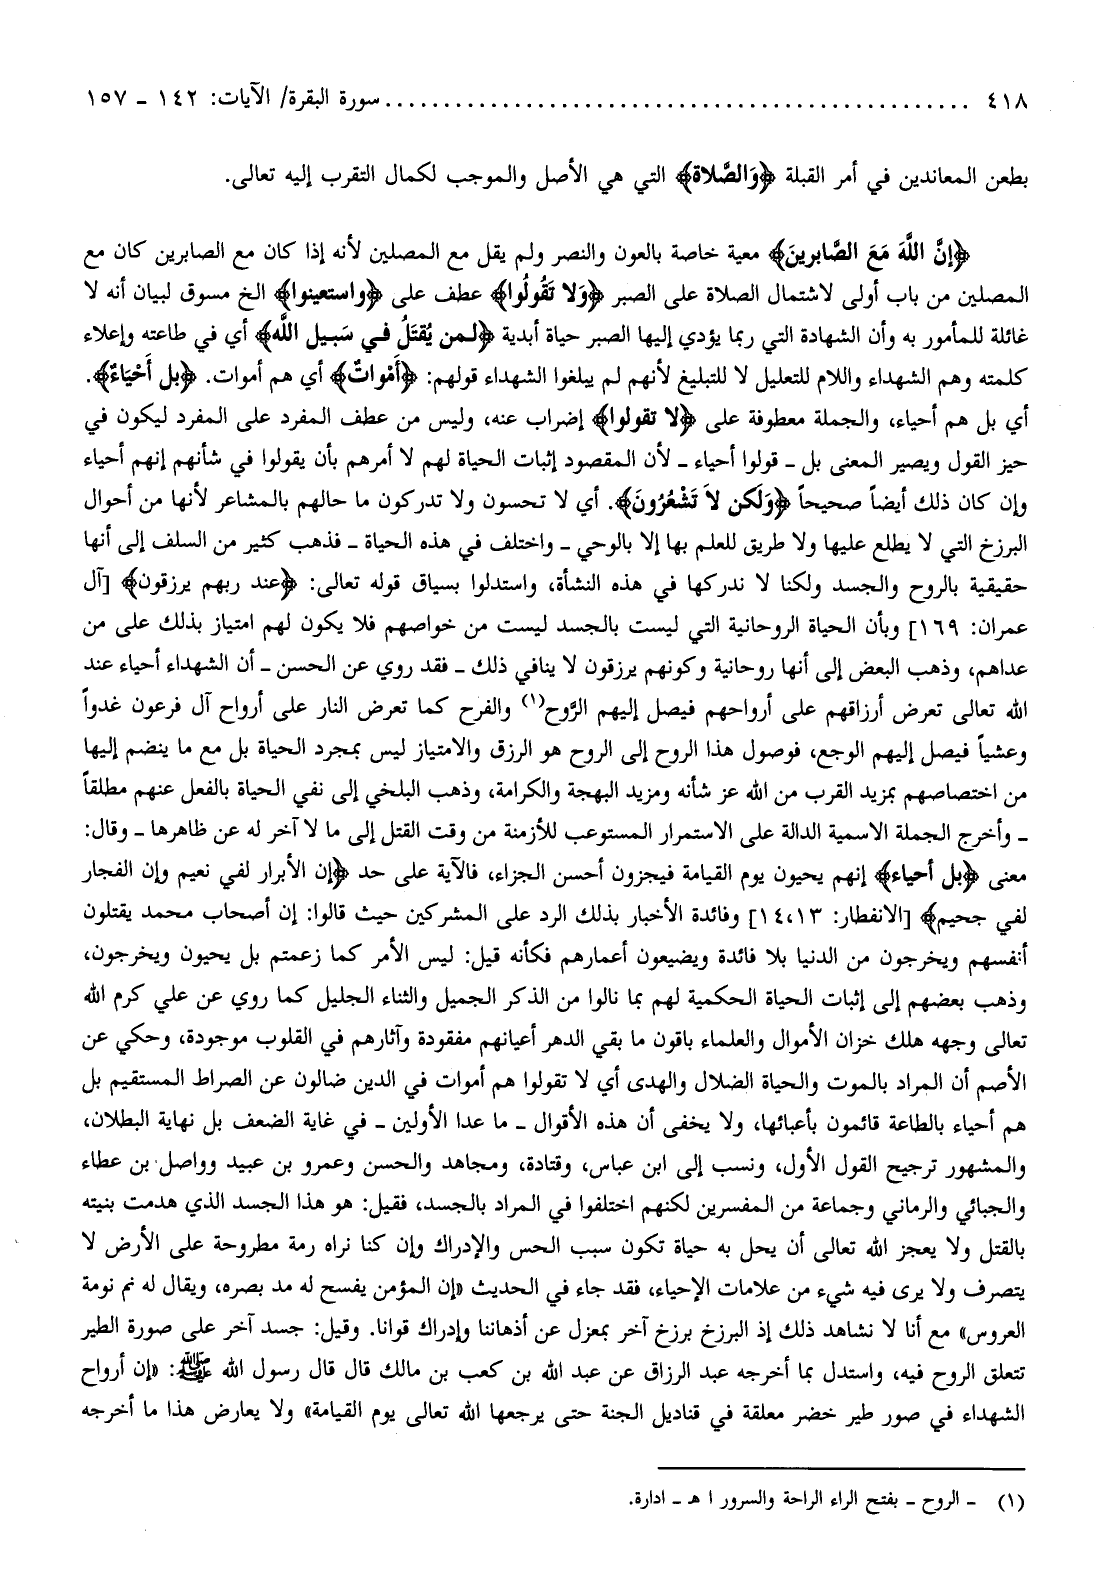 ٤١٨ ................................................ سورة البقرة/ الآيات: ١٤٢ ـ ١٥٧
بطعن المعاندين في أمر القبلة ﴿وَالصَّلاة﴾ التي هي الأصل والموجب لكمال التقرب إليه تعالى.
﴿إنَّ اللَّهَ مَعَ الصَّابرينَ﴾ معية خاصة بالعون والنصر ولم يقل مع المصلين لأنه إذا كان مع الصابرين كان مع
المصلين من باب أولى لاشتمال الصلاة على الصبر ﴿وَلا تَقُولُوا﴾ عطف على ﴿واستعينوا﴾ الخ مسوق لبيان أنه لا
غائلة للمأمور به وأن الشهادة التي ربما يؤدي إليها الصبر حياة أبدية ﴿لـمن يُقتَلُ فـي سَبـيل اللَّه﴾ أي في طاعته وإعلاء
كلمته وهم الشهداء واللام للتعليل لا للتبليغ لأنهم لم يبلغوا الشهداء قولهم: ﴿أَمْواتٌ﴾ أي هم أموات. ﴿بل أَحْيَاءٌ﴾.
أي بل هم أحياء، والجملة معطوفة على ﴿لا تقولوا﴾ إضراب عنه، وليس من عطف المفرد على المفرد ليكون في
حيز القول ويصير المعنى بل ـ قولوا أحياء ـ لأن المقصود إثبات الحياة لهم لا أمرهم بأن يقولوا في شأنهم إنهم أحياء
وإن كان ذلك أيضاً صحيحاً ﴿وَلَكن لاَ تَشْعُرُونَ﴾. أي لا تحسون ولا تدركون ما حالهم بالمشاعر لأنها من أحوال
البرزخ التي لا يطلع عليها ولا طريق للعلم بها إلا بالوحي ـ واختلف في هذه الحياة ـ فذهب كثير من السلف إلى أنها
حقيقية بالروح والجسد ولكنا لا ندركها في هذه النشأة، واستدلوا بسياق قوله تعالى: ﴿عند ربهم يرزقون﴾ [آل
عمران: ١٦٩] وبأن الحياة الروحانية التي ليست بالجسد ليست من خواصهم فلا يكون لهم امتياز بذلك على من
عداهم، وذهب البعض إلى أنها روحانية وكونهم يرزقون لا ينافي ذلك ـ فقد روي عن الحسن ـ أن الشهداء أحياء عند
الله تعالى تعرض أرزاقهم على أرواحهم فيصل إليهم الرَّوح(١) والفرح كما تعرض النار على أرواح آل فرعون غدواً
وعشياً فيصل إليهم الوجع، فوصول هذا الروح إلى الروح هو الرزق والامتياز ليس بمجرد الحياة بل مع ما ينضم إليها
من اختصاصهم بمزيد القرب من الله عز شأنه ومزيد البهجة والكرامة، وذهب البلخي إلى نفي الحياة بالفعل عنهم مطلقاً
ـ وأخرج الجملة الاسمية الدالة على الاستمرار المستوعب للأزمنة من وقت القتل إلى ما لا آخر له عن ظاهرها ـ وقال:
معنى ﴿بل أحياء﴾ إنهم يحيون يوم القيامة فيجزون أحسن الجزاء، فالآية على حد ﴿إن الأبرار لفي نعيم وإن الفجار
لفي جحيم﴾ [الانفطار: ١٣، ١٤] وفائدة الأخبار بذلك الرد على المشركين حيث قالوا: إن أصحاب محمد يقتلون
أنفسهم ويخرجون من الدنيا بلا فائدة ويضيعون أعمارهم فكأنه قيل: ليس الأمر كما زعمتم بل يحيون ويخرجون،
وذهب بعضهم إلى إثبات الحياة الحكمية لهم بما نالوا من الذكر الجميل والثناء الجليل كما روي عن علي كرم الله
تعالى وجهه هلك خزان الأموال والعلماء باقون ما بقي الدهر أعيانهم مفقودة وآثارهم في القلوب موجودة، وحكي عن
الأصم أن المراد بالموت والحياة الضلال والهدى أي لا تقولوا هم أموات في الدين ضالون عن الصراط المستقيم بل
هم أحياء بالطاعة قائمون بأعبائها، ولا يخفى أن هذه الأقوال ـ ما عدا الأولين ـ في غاية الضعف بل نهاية البطلان،
والمشهور ترجيح القول الأول، ونسب إلى ابن عباس، وقتادة، ومجاهد والحسن وعمرو بن عبيد وواصل بن عطاء
والجبائي والرماني وجماعة من المفسرين لكنهم اختلفوا في المراد بالجسد، فقيل: هو هذا الجسد الذي هدمت بنيته
بالقتل ولا يعجز الله تعالى أن يحل به حياة تكون سبب الحس والإدراك وإن كنا نراه رمة مطروحة على الأرض لا
يتصرف ولا يرى فيه شيء من علامات الإحياء، فقد جاء في الحديث «إن المؤمن يفسح له مد بصره، ويقال له نم نومة
العروس» مع أنا لا نشاهد ذلك إذ البرزخ برزخ آخر بمعزل عن أذهاننا وإدراك قوانا. وقيل: جسد آخر على صورة الطير
تتعلق الروح فيه، واستدل بما أخرجه عبد الرزاق عن عبد الله بن كعب بن مالك قال قال رسول الله ﷺ: «إن أرواح
الشهداء في صور طير خضر معلقة في قناديل الجنة حتى يرجعها الله تعالى يوم القيامة» ولا يعارض هذا ما أخرجه
(١) ـ الروح ـ بفتح الراء الراحة والسرور ا هـ ـ ادارة.